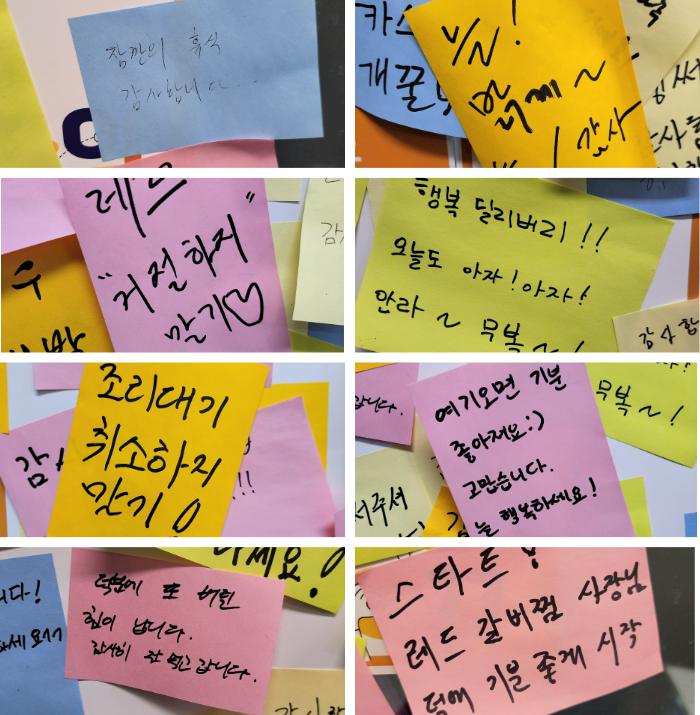 잠깐의 휴식
감사합니다..
카스
개꿀
V/N!
께~
감사
레드
"거절하지
말기♡"
감
행복 딜리버리!!
오늘도 아자!아자!
안라~ 무복~!
감사합
조리대기
취소하지
말기!
감
!!!
여기오면 기분
좋아져요:)
고맙습니다.
늘 행복하세요!
합니다.
무복~!
서주셔
니다!
하세요!
덕분에 또 버린
힘이 납니다.
감사히 잘 먹고 갑니다.
스타트!
레드 갈비찜 사장님
덤에 기분 좋게 시작